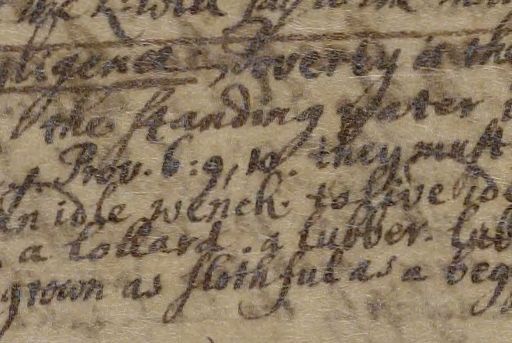 say to the
ligence. Poverty is the
the standing water
Prov. 6: 9, 10. they must
an idle wench. to live
. a lollard. a lubber. lub
grown as slothful as a beg